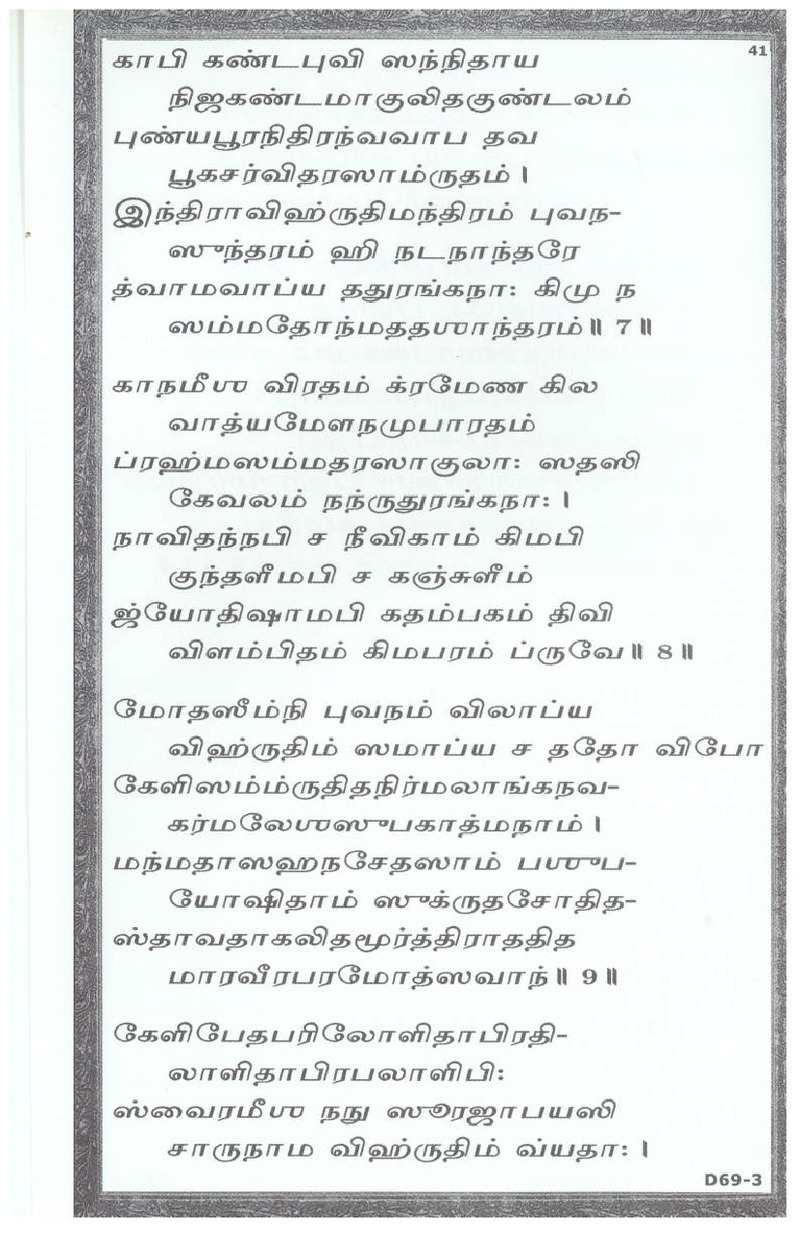 41
காபி கண்டபுவி ஸந்நிதாய
நிஜகண்டமாகுலிதகுண்டலம்
புண்யபூரநிதிரந்வவாப தவ
பூகசர்விதரஸாம்ருதம் ।
இந்திராவிஹ்ருதிமந்திரம் புவந-
ஸுந்தரம் ஹி நடநாந்தரே
த்வாமவாப்ய ததுரங்கநா: கிமு ந
ஸம்மதோந்மததஶாந்தரம் ॥ 7 ॥
காநமீஶ விரதம் க்ரமேண கில
வாத்யமேளநமுபாரதம்
ப்ரஹ்மஸம்மதரஸாகுலா: ஸதஸி
கேவலம் நந்ருதுரங்கநா: ।
நாவிதந்நபி ச நீவிகாம் கிமபி
குந்தளீமபி ச கஞ்சுளீம்
ஜ்யோதிஷாமபி கதம்பகம் திவி
விளம்பிதம் கிமபரம் ப்ருவே ॥ 8 ॥
மோதஸீம்நி புவநம் விலாப்ய
விஹ்ருதிம் ஸமாப்ய ச ததோ விபோ
கேளிஸம்ம்ருதிதநிர்மலாங்கநவ-
கர்மலேஶஸுபகாத்மநாம் ।
மந்மதாஸஹநசேதஸாம் பஶுப-
யோஷிதாம் ஸுக்ருதசோதித-
ஸ்தாவதாகலிதமூர்த்திராததித
மாரவீரபரமோத்ஸவாந் ॥ 9 ॥
கேளிபேதபரிலோளிதாபிரதி-
லாளிதாபிரபலாளிபி:
ஸ்வைரமீஶ நநு ஸூரஜாபயஸி
சாருநாம விஹ்ருதிம் வ்யதா: ।
D69-3